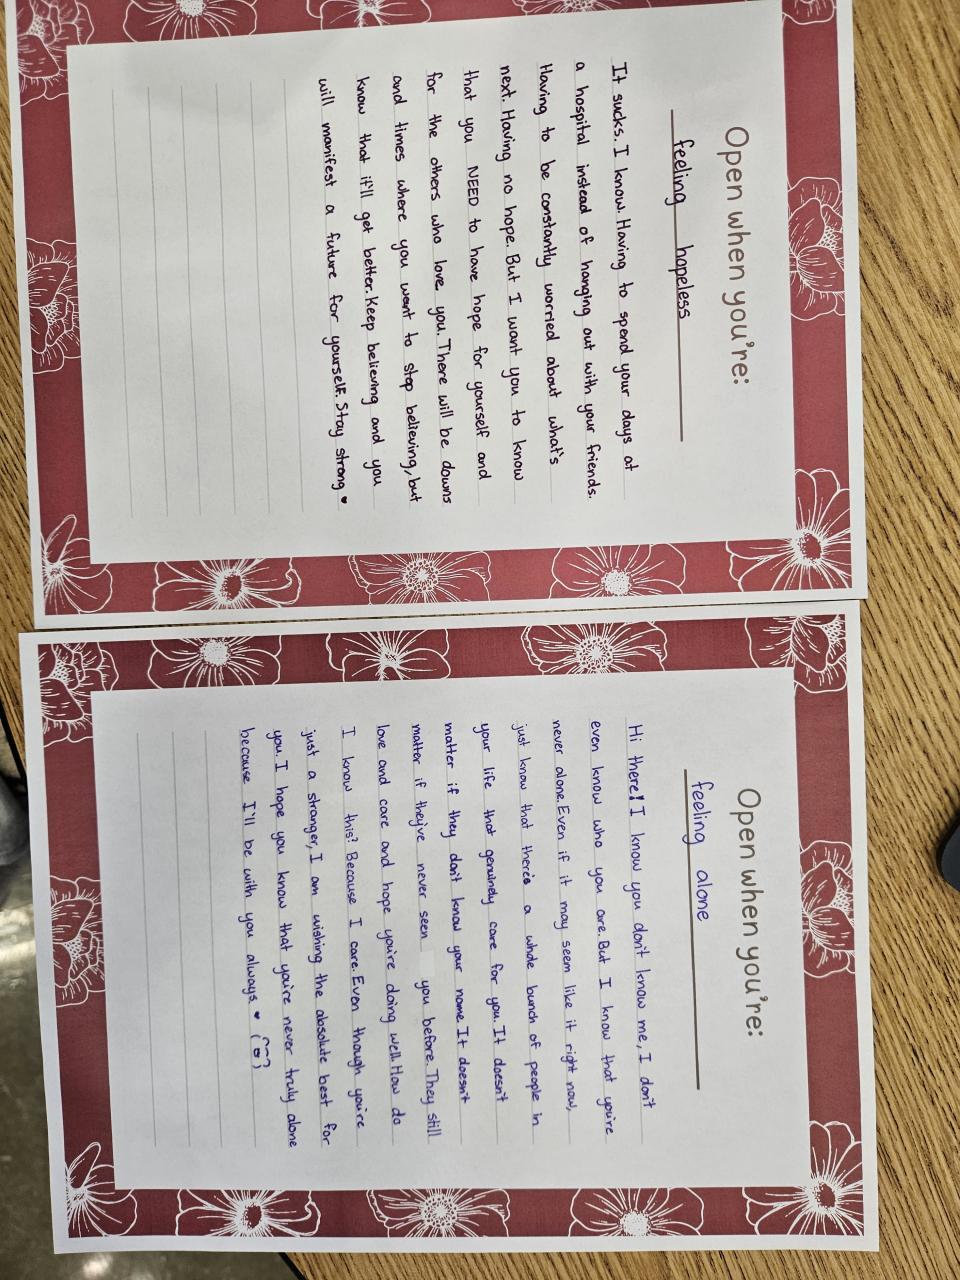 Open when you're:
feeling hopeless
It sucks. I know. Having to spend your days at
a hospital instead of hanging out with your friends.
Having to be constantly worried about what's
next. Having no hope. But I want you to know
that you NEED to have hope for yourself and
for the others who love you. There will be downs
and times where you want to stop believing, but
know that it'll get better. Keep believing and you
will manifest a future for yourself. Stay strong ♥
Open when you're:
feeling alone
Hi there! I know you don't know me, I don't
even know who you are. But I know that you're
never alone. Even if it may seem like it right now,
just know that there's a whole bunch of people in
your life that genuinely care for you. It doesn't
matter if they don't know your name. It doesn't
matter if they've never seen you before. They still
love and care and hope you're doing well. How do
I know this? Because I care. Even though you're
just a stranger, I am wishing the absolute best for
you. I hope you know that you're never truly alone
because I'll be with you always ♥